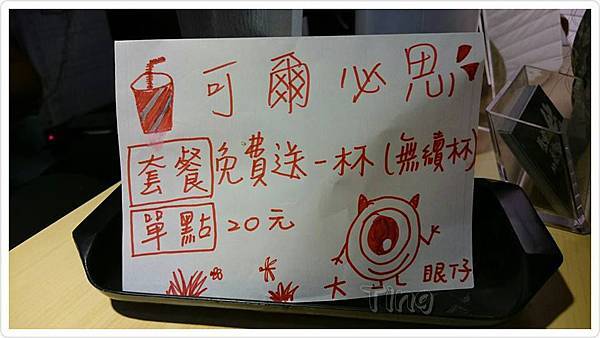 可爾必思
套餐 免費送一杯(無續杯)
單點 20元
大眼仔
Ting